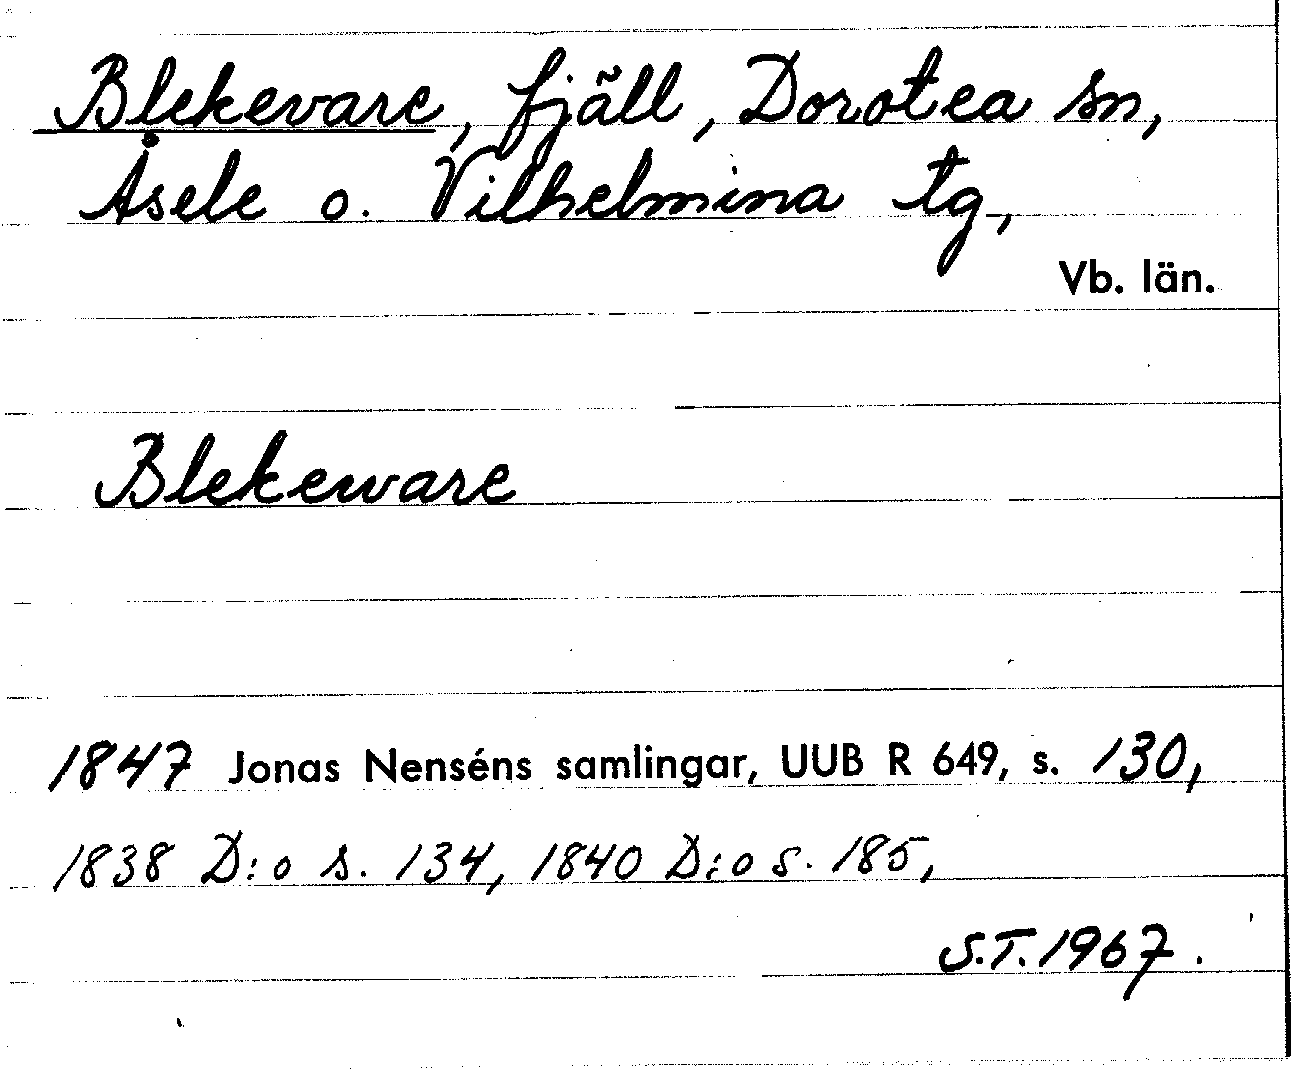 Blekevare, fjäll, Dorotea sn,
Åsele o. Vilhelmina tg,
Vb. län.
Blekeware
1847 Jonas Nenséns samlingar, UUB R 649, s. 130,
1838 D:o s. 134, 1840 D:o s. 185,
S.T. 1967.